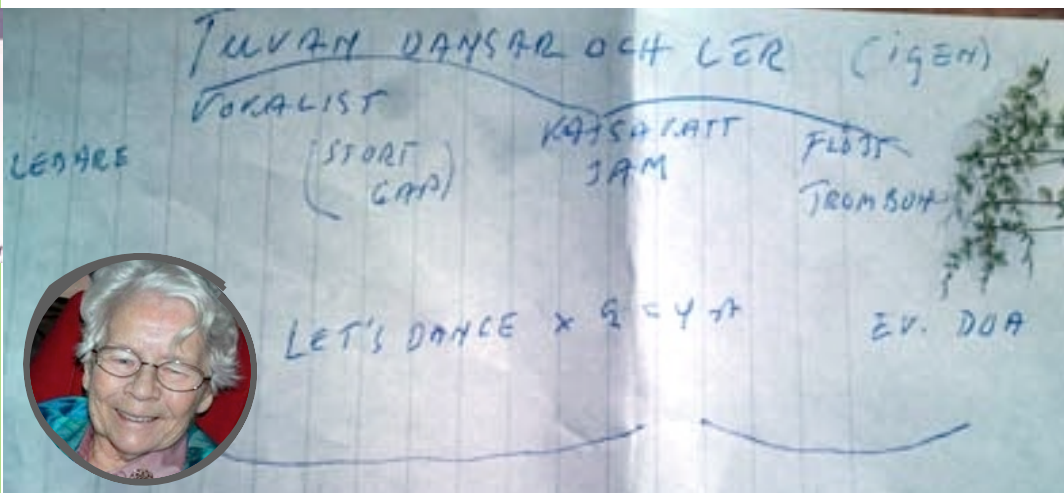 TUVAN DANSAR OCH LER (IGEN)
VOKALIST
LEDARE
(STORT
GAP)
JAM
FLÖJT
TROMBON
LET'S DANCE x 2 = 4 ST
EV. DUA